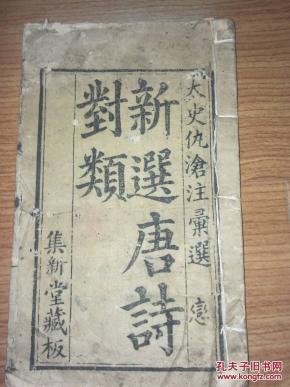 太史仇滄注彙選
新選唐詩
對類
集新堂藏板
孔夫子旧书网